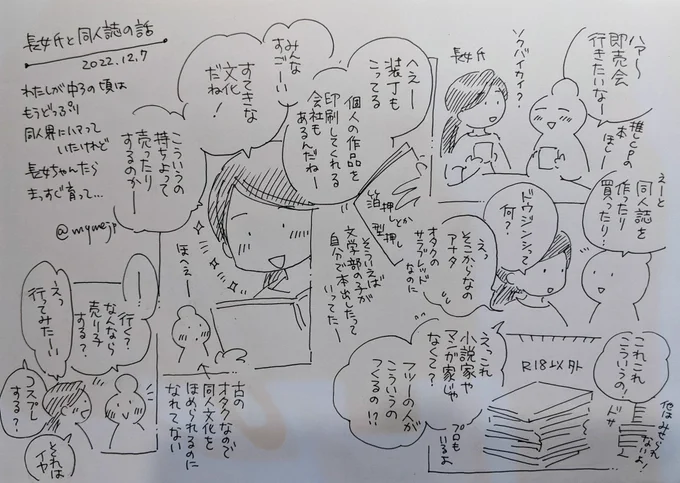 長女氏と同人誌の話
2022.12.7
わたしが中3の頃は
もうどっぷり
同人界にハマって
いたけれど
長女ちゃんたら
まっすぐ育って…
@mymejp
ハァ〜
即売会
行きたいなー
推しCPの
本
ほしー
ソクバイカイ？
長女氏
えーと
同人誌を
作ったり
買ったり…
ドウジンシって
何？
えっ
そこからなの
アナタ
オタクの
サラブレッド
なのに
これこれ
こういうの！
ドサ
他はみせられ
ないよ！
R18以外
えっこれ
小説家や
マンガ家じゃ
なくて？
フツーの人が
こういうの
つくるの！？
プロも
いるよ
へえー
装丁も
こってる
個人の作品を
印刷してくれる
会社も
あるんだねー
箔押しとか
型押し
そういえば
文学部の子が
自分で本出したって
いってたー
みんな
すごーい
すてきな
文化
だね！
こういうの
持ちよって
売ったり
するのかー
ほへぇー
古の
オタクなので
同人文化を
ほめられるのに
なれてない
行く？
なんなら
売り子
する？
えっ
行ってみたーい
コスプレ
する？
それは
イヤ